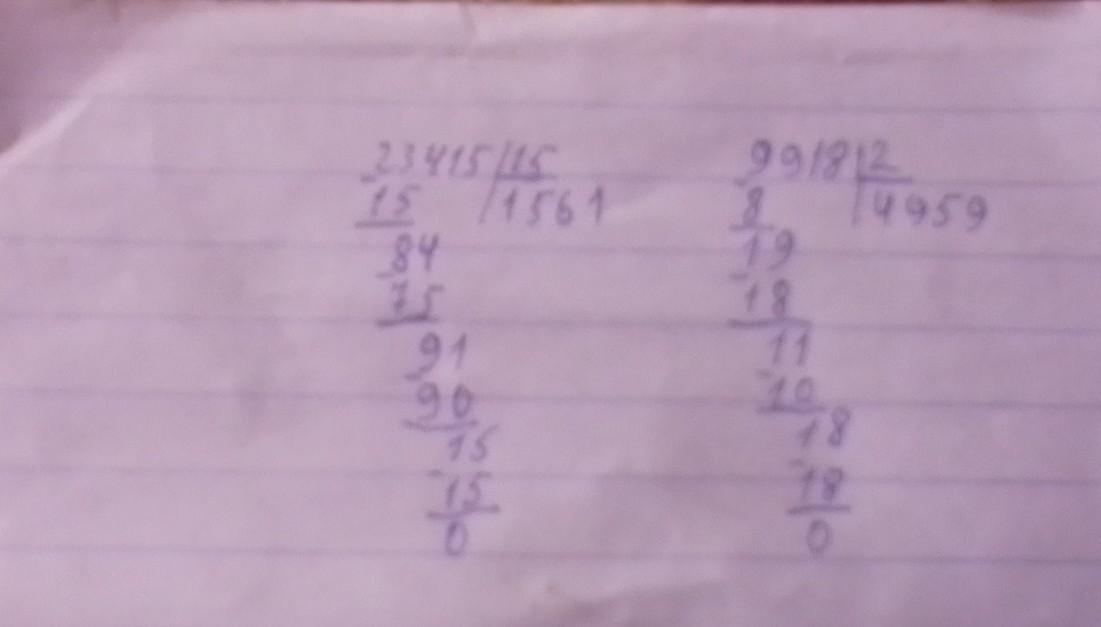 23415 | 15
15 | 1561
84
75
91
90
15
15
0
9918 | 2
8 | 4959
19
18
11
10
18
18
0